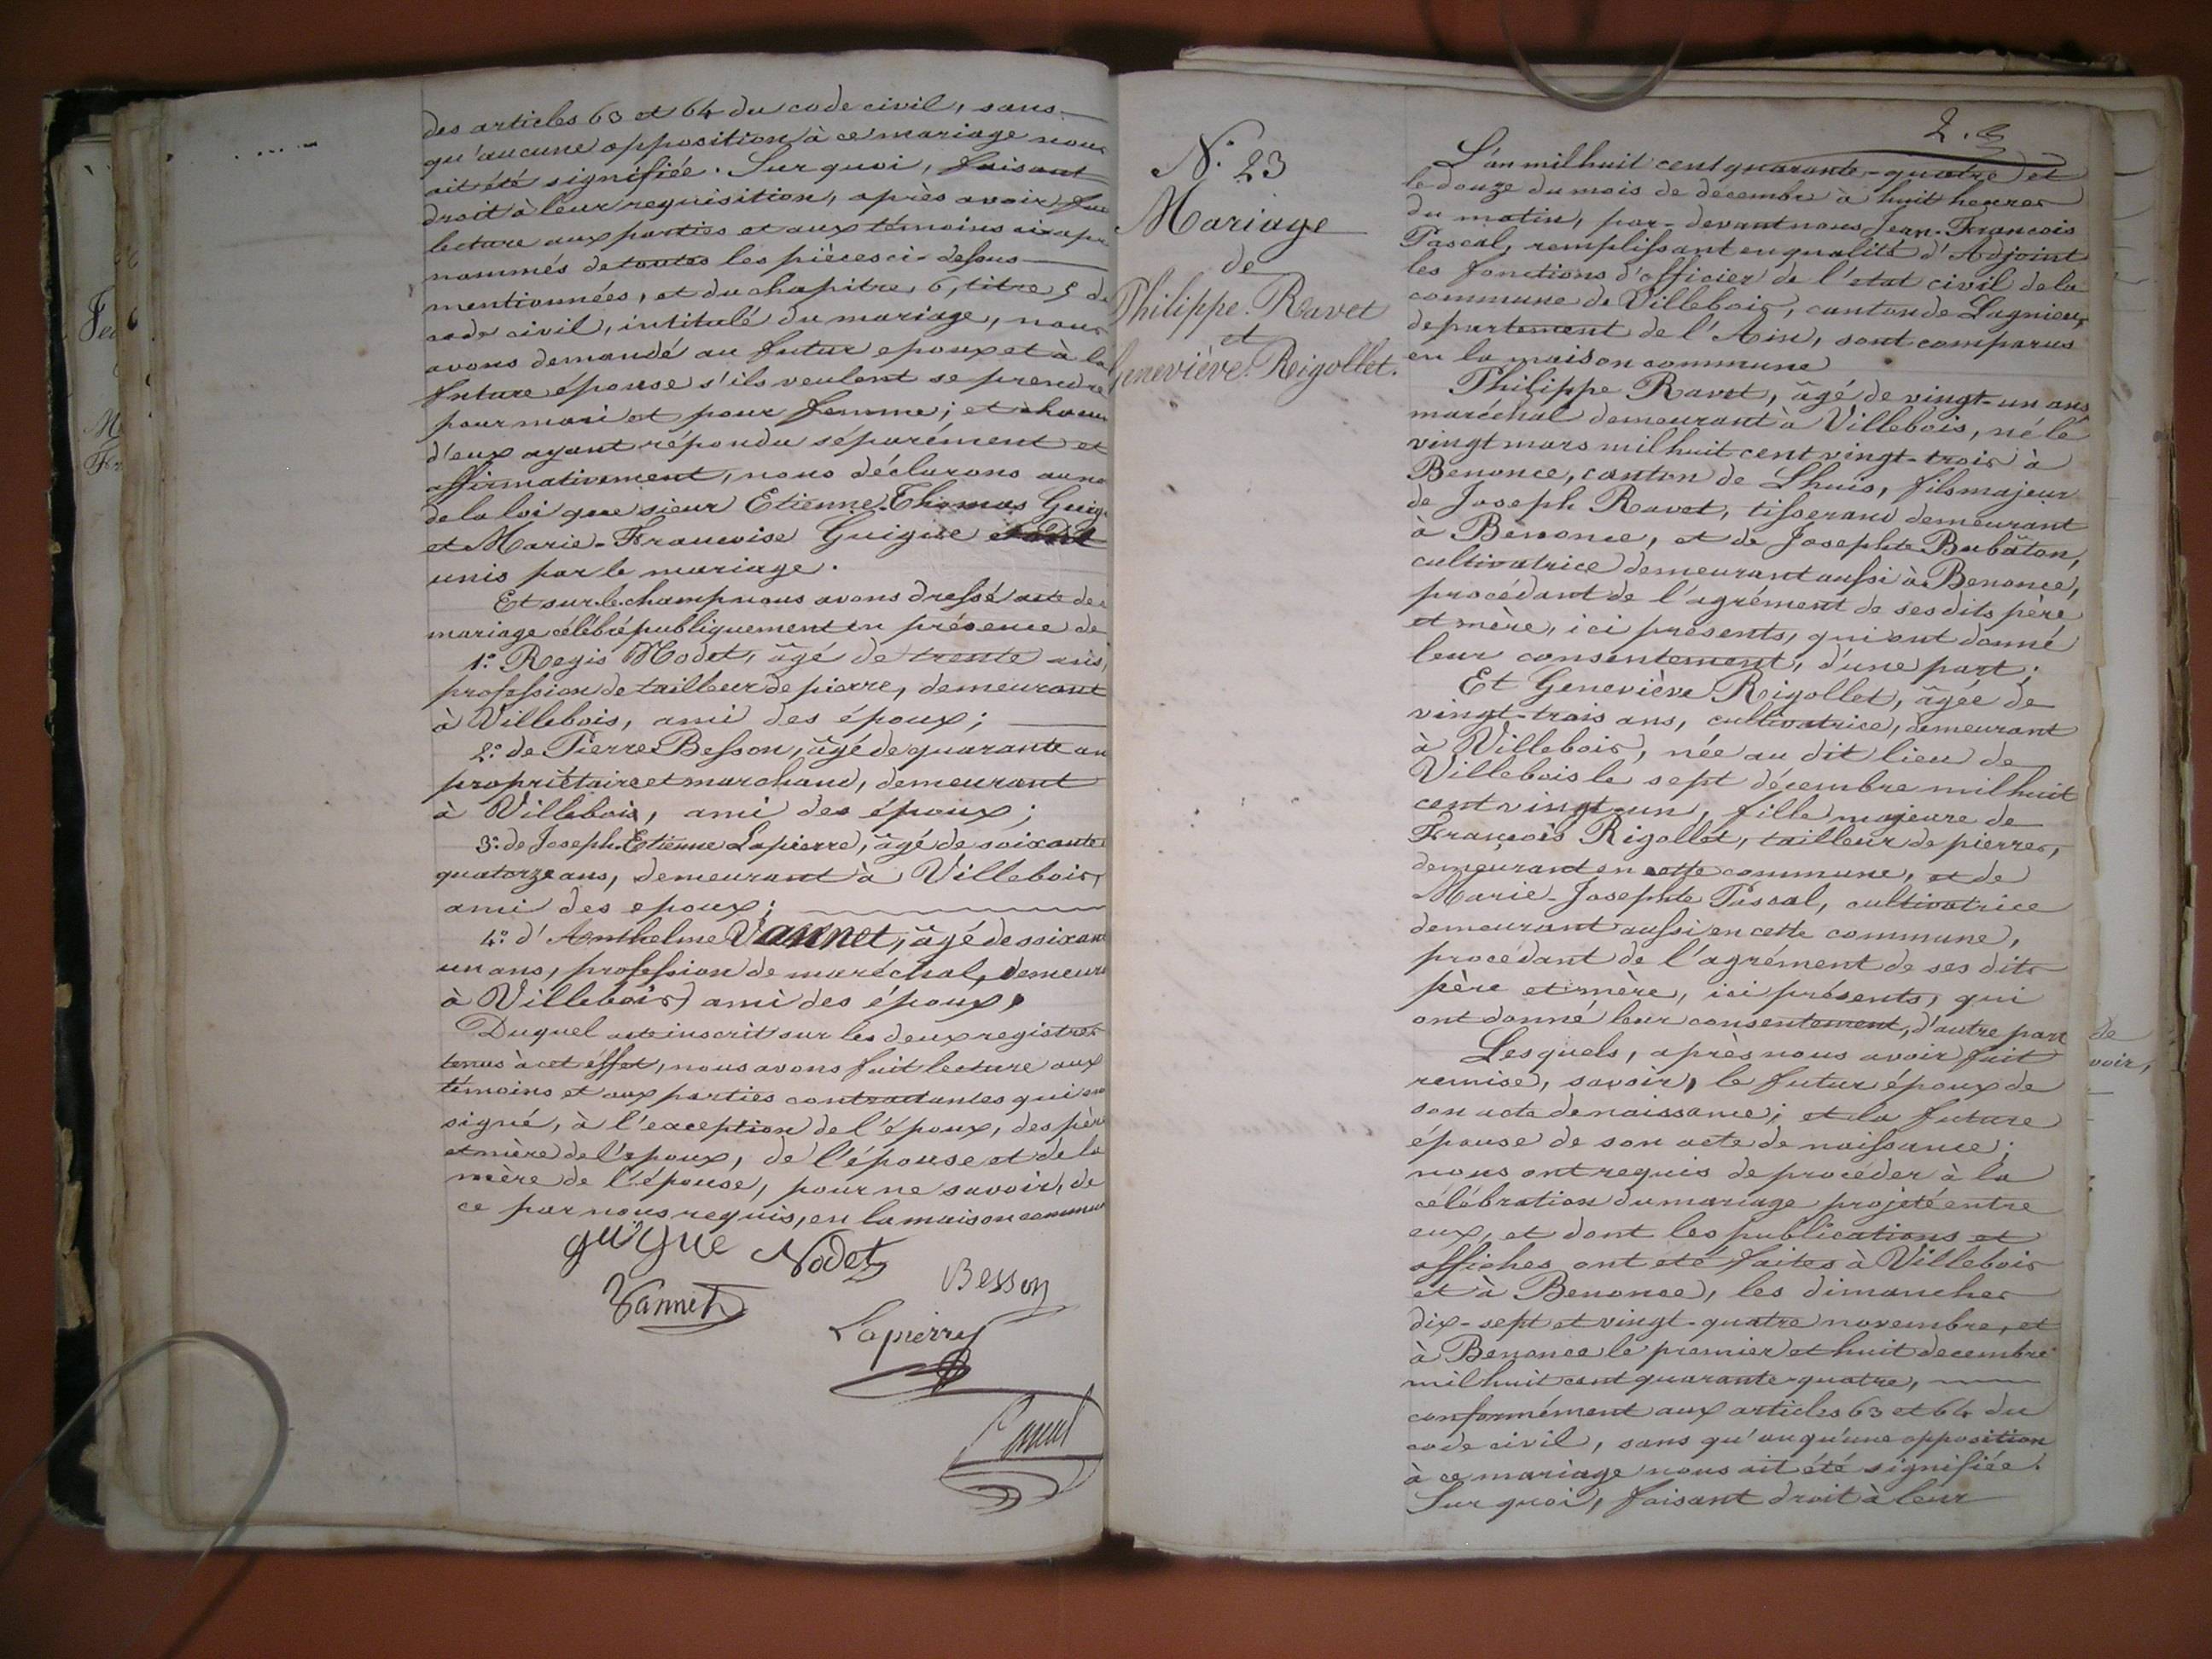 des articles 63 et 64 du code civil, sans
qu'aucune opposition à ce mariage nous
ait été signifiée. Sur quoi, faisant
droit à leur requisition, après avoir
lecture aux parties et aux témoins
nommés de toutes les pièces ci-dessus
mentionnées, et du chapitre, 6, titre 5 d
code civil, intitulé du mariage, nous
avons demandé au futur epoux et à la
future épouse s'ils veulent se prendre
pour mari et pour femme; et chacun
d'eux ayant répondu séparément et
affirmativement, nous déclarons au no
de la loi que sieur Etienne-Thomas Guig
et Marie-Francoise Guigue sont
unis par le mariage.
Et sur-le-champ nous avons dressé acte de
mariage célébré publiquement en présence de
1.° Regis Nodet, âgé de trente ans,
profession de tailleur de pierre, demeurant
à Villebois, ami des époux;
2.° de Pierre Besson, âgé de quarante an
propriétaire et marchand, demeurant
à Villebois, ami des époux;
3.° de Joseph-Etienne Lapierre, âgé de soixante
quatorze ans, demeurant à Villebois,
ami des epoux;
4.° d'Anthelme Vannet, âgé de soixan
un ans, profession de maréchal, demeura
à Villebois, ami des époux.
Duquel acte inscrit sur les deux registres
tenus à cet éffet, nous avons fait lecture aux
témoins et aux parties contractantes qui on
signé, à l'exception de l'époux, des père
et mère de l'époux, de l'épouse et de la
mère de l'épouse, pour ne savoir, de
ce par nous requis, en la maison commune
guigue Nodet Besson
Vannet
Lapierre
Pascal
N.° 23
Mariage
de
Philippe Ravet
et
Geneviève Rigollet.
L'an mil huit cent quarante-quatre et
le douze du mois de décembre à huit heures
du matin, par-devant nous Jean-Francois
Pascal, remplissant en qualité d'Adjoint
les fonctions d'officier de l'état civil de la
commune de Villebois, canton de Lagnieu,
departement de l'Ain, sont comparus
en la maison commune
Philippe Ravet, âgé de vingt-un ans,
maréchal demeurant à Villebois, né le
vingt mars mil huit cent vingt-trois à
Benonce, canton de Lhuis, fils majeur
de Joseph Ravet, tisserand demeurant
à Benonce, et de Josephte Babâton,
cultivatrice demeurant aussi à Benonce,
procédant de l'agrément de ses dits père
et mère, ici présents, qui ont donné
leur consentement, d'une part;
Et Geneviève Rigollet, âgée de
vingt-trois ans, cultivatrice, demeurant
à Villebois, née au dit lieu de
Villebois le sept décembre mil huit
cent vingt-un, fille majeure de
François Rigollet, tailleur de pierres,
demeurant en cette commune, et de
Marie-Josephte Pascal, cultivatrice
demeurant aussi en cette commune,
procédant de l'agrément de ses dits
père et mère, ici présents, qui
ont donné leur consentement, d'autre part
Lesquels, après nous avoir fait
remise, savoir, le futur époux de
son acte de naissance; et la future
épouse de son acte de naissance;
nous ont requis de procéder à la
célébration du mariage projeté entre
eux, et dont les publications et
affiches ont été faites à Villebois
et à Benonce, les dimanches
dix-sept et vingt-quatre novembre, et
à Benonce le premier et huit decembre
mil huit cent quarante-quatre,
conformément aux articles 63 et 64 du
code civil, sans qu'auqu'une opposition
à ce mariage nous ait été signifiée.
Sur quoi, faisant droit à leur
de
voir,